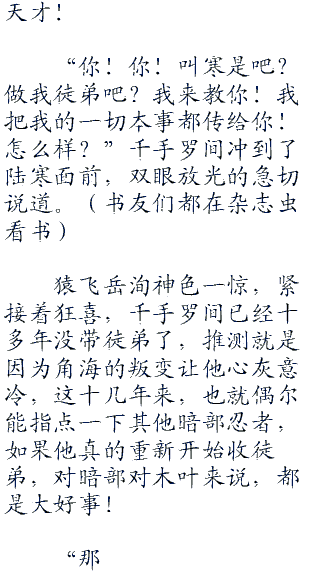 天才！
“你！你！叫寒是吧？
做我徒弟吧？我来教你！我
把我的一切本事都传给你！
怎么样？”千手罗间冲到了
陆寒面前，双眼放光的急切
说道。（书友们都在杂志虫
看书）
猿飞岳洵神色一惊，紧
接着狂喜，千手罗间已经十
多年没带徒弟了，推测就是
因为角海的叛变让他心灰意
冷，这十几年来，也就偶尔
能指点一下其他暗部忍者，
如果他真的重新开始收徒
弟，对暗部对木叶来说，都
是大好事！
“那